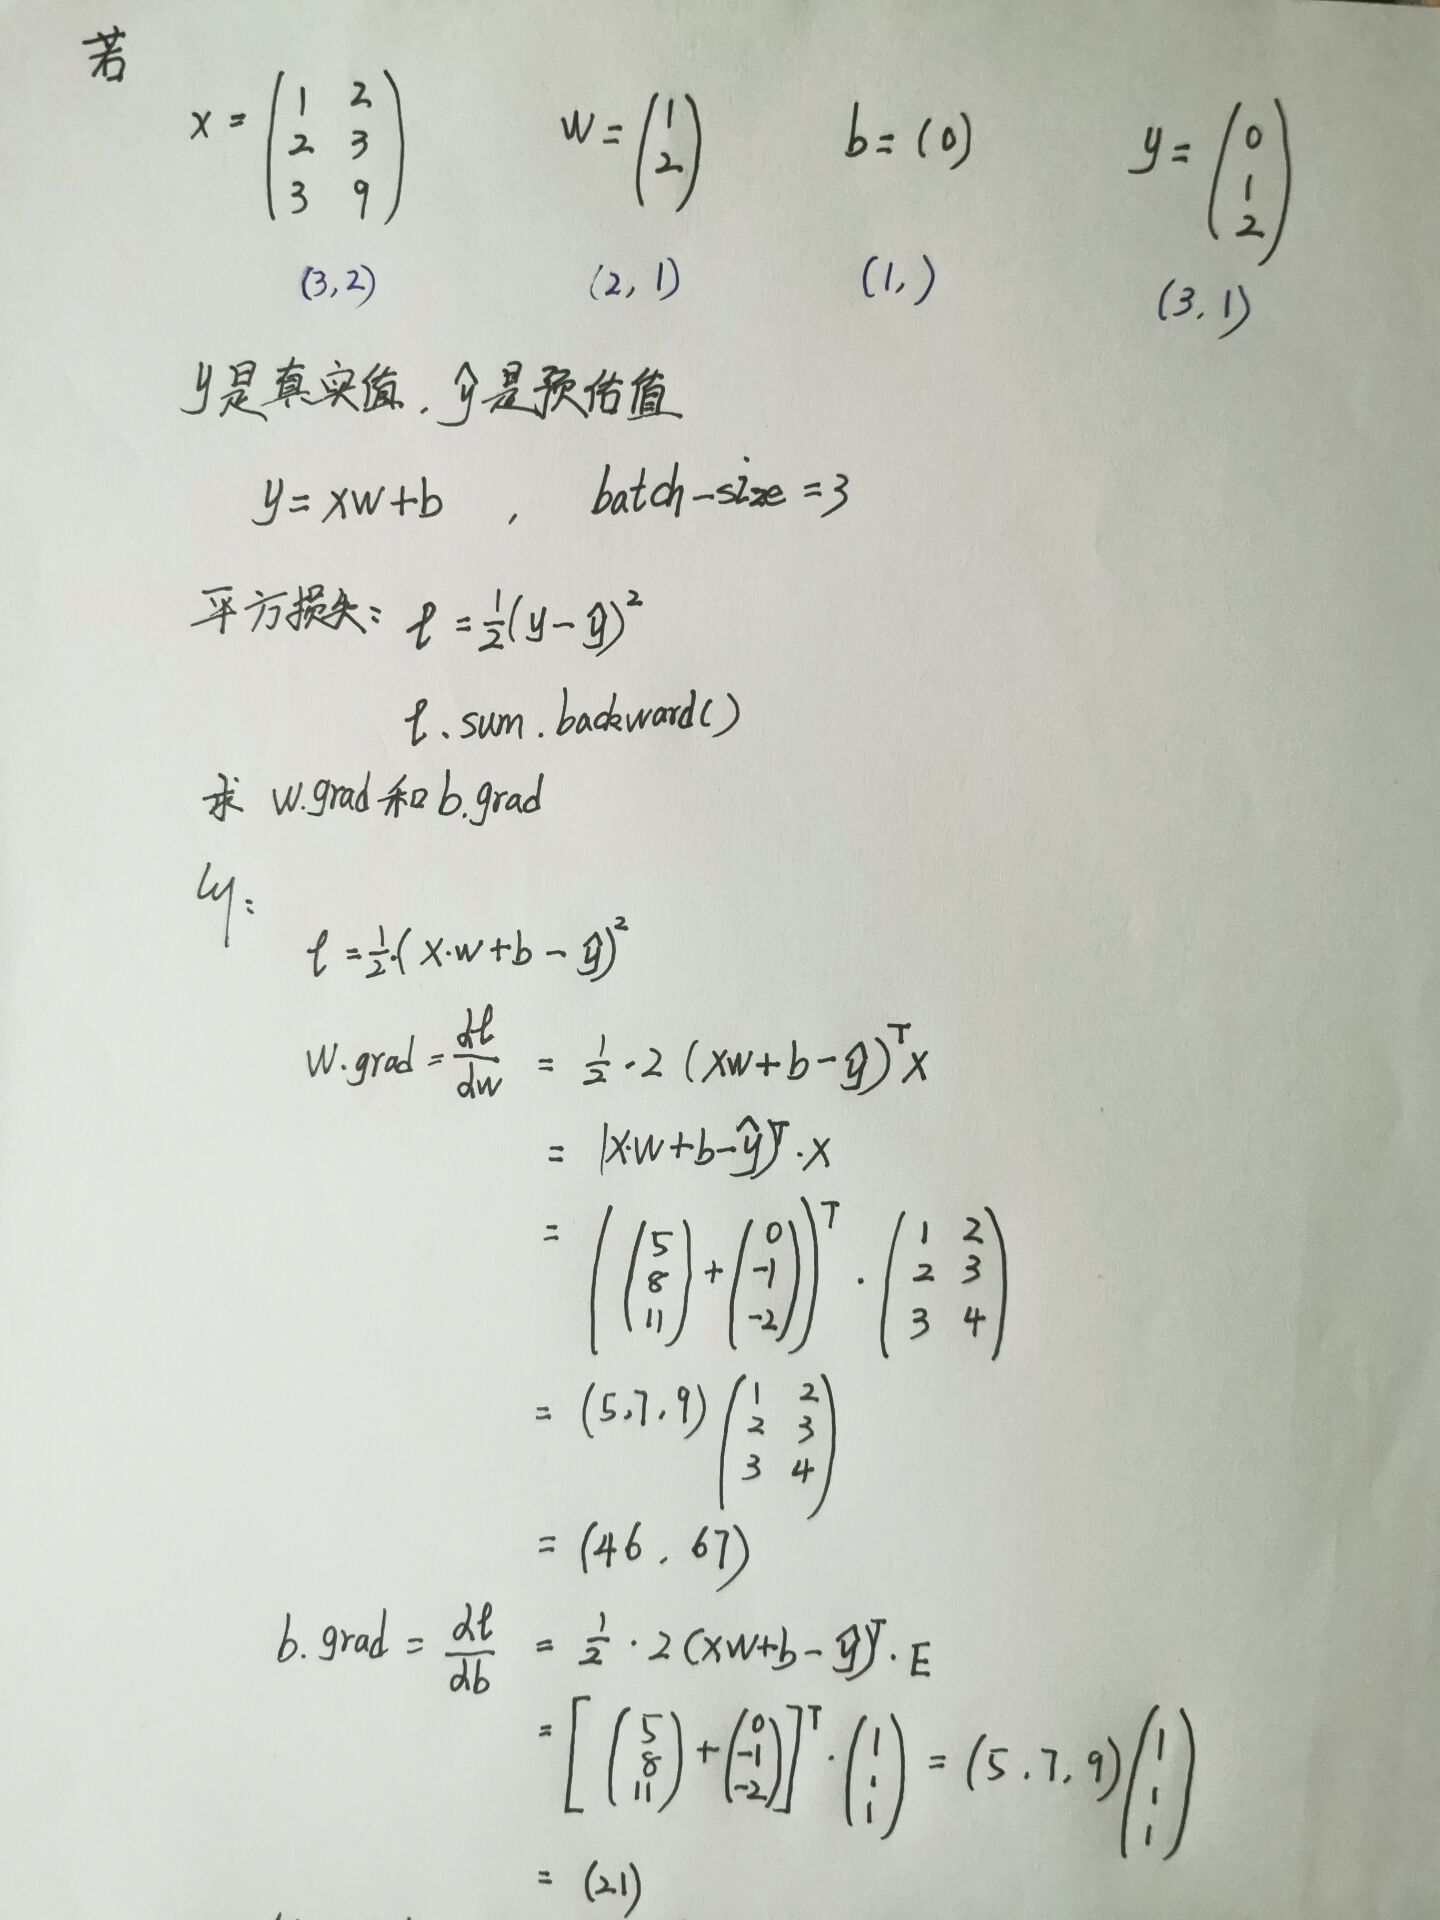 若
x = (1 2; 2 3; 3 9) w = (1; 2) b = (0) y = (0; 1; 2)
(3,2) (2,1) (1,) (3,1)
y是真实值, ŷ是预估值
y = xw+b , batch-size = 3
平方损失: ℓ = 1/2(y-ŷ)²
ℓ.sum.backward()
求 w.grad和b.grad
ℓ = 1/2·(x·w+b-ŷ)²
w.grad = dℓ/dw = 1/2·2(xw+b-ŷ)ᵀx
= (x·w+b-ŷ)ᵀ·x
= ((5; 8; 11)+(0; -1; -2))ᵀ·(1 2; 2 3; 3 4)
= (5,7,9)(1 2; 2 3; 3 4)
= (46, 67)
b.grad = dℓ/db = 1/2·2(xw+b-ŷ)ᵀ·E
= [(5; 8; 11)+(0; -1; -2)]ᵀ·(1; 1; 1) = (5,7,9)(1; 1; 1)
= (21)